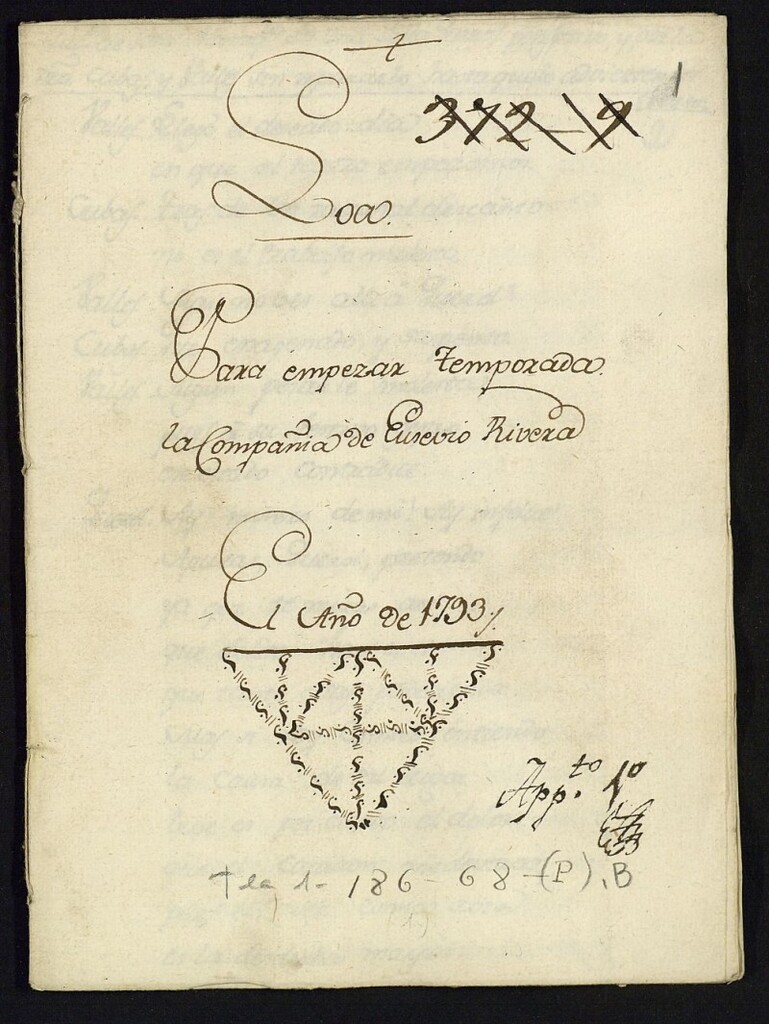 1
372-9
Loa.
Para empezar temporada.
la Compañia de Eusevio Rivera
El Año de 1793/,
App.to 1º
1-186-68-(P), B